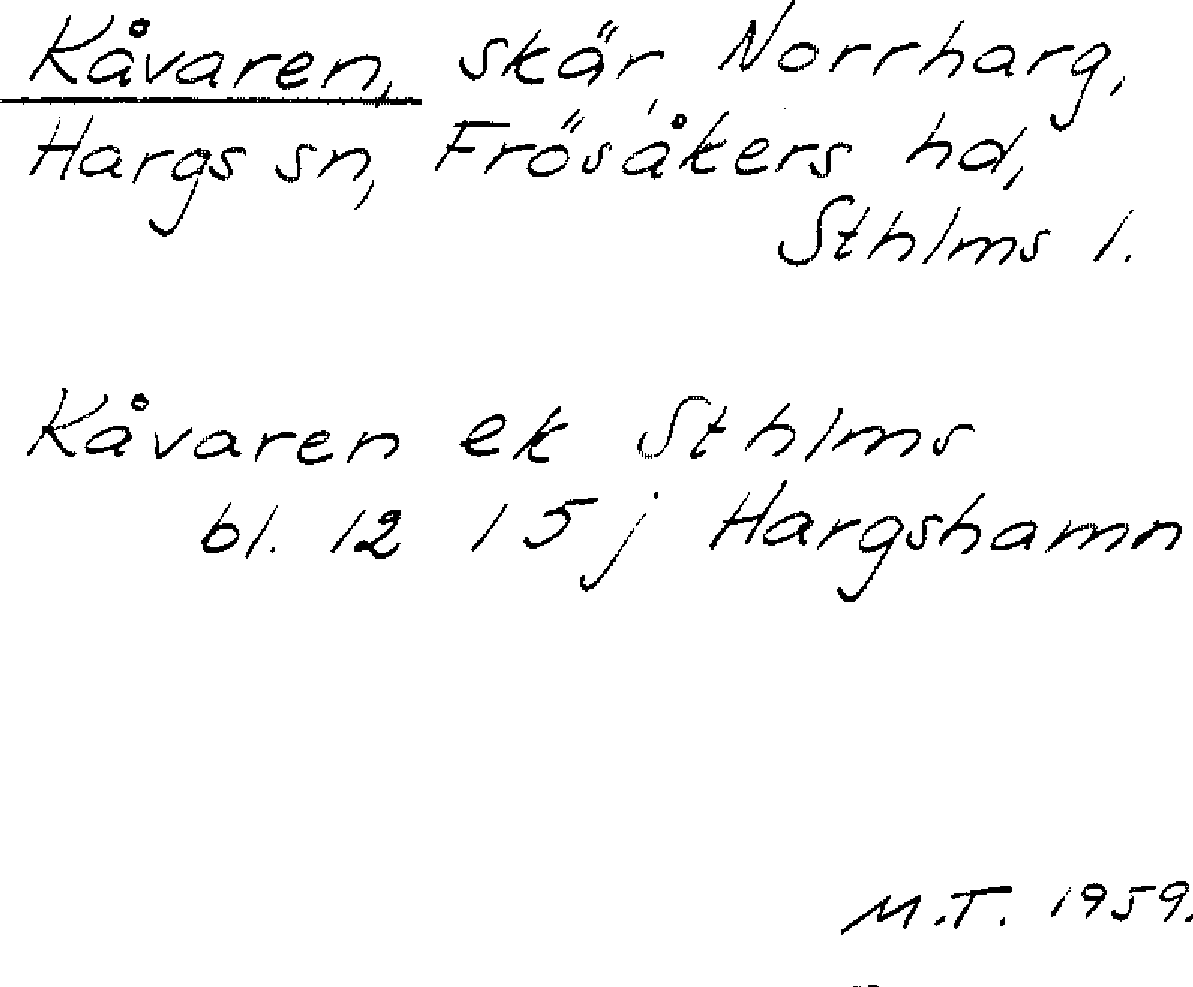 Kåvaren, skär, Norrharg,
Hargs sn, Frösåkers hd,
Sthlms l.
Kåvaren ek Sthlms
bl. 12 15j Hargshamn
M.T. 1959.